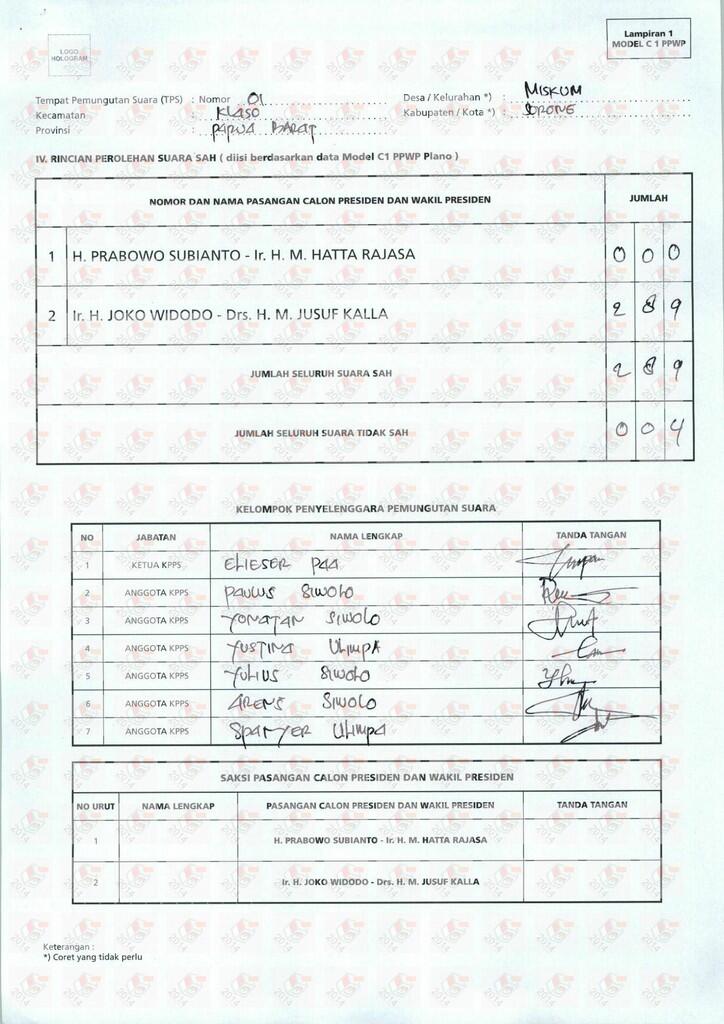 Lampiran 1
MODEL C 1 PPWP
LOGO
HOLOGRAM
Tempat Pemungutan Suara (TPS) : Nomor 01 Desa / Kelurahan *) : MISKUM
Kecamatan : KLASO Kabupaten / Kota *) : SORONG
Provinsi : PAPUA BARAT
IV. RINCIAN PEROLEHAN SUARA SAH ( diisi berdasarkan data Model C1 PPWP Plano )
NOMOR DAN NAMA PASANGAN CALON PRESIDEN DAN WAKIL PRESIDEN JUMLAH
1 H. PRABOWO SUBIANTO - Ir. H. M. HATTA RAJASA 0 0 0
2 Ir. H. JOKO WIDODO - Drs. H. M. JUSUF KALLA 2 8 9
JUMLAH SELURUH SUARA SAH 2 8 9
JUMLAH SELURUH SUARA TIDAK SAH 0 0 4
KELOMPOK PENYELENGGARA PEMUNGUTAN SUARA
NO JABATAN NAMA LENGKAP TANDA TANGAN
1 KETUA KPPS ELIESER PAA
2 ANGGOTA KPPS PAULUS SIWOLO
3 ANGGOTA KPPS YONATAN SIWOLO
4 ANGGOTA KPPS YUSTINA ULIMPA
5 ANGGOTA KPPS YULIUS SIWOLO
6 ANGGOTA KPPS ARENS SIWOLO
7 ANGGOTA KPPS ULIMPA
SAKSI PASANGAN CALON PRESIDEN DAN WAKIL PRESIDEN
NO URUT NAMA LENGKAP PASANGAN CALON PRESIDEN DAN WAKIL PRESIDEN TANDA TANGAN
1 H. PRABOWO SUBIANTO - Ir. H. M. HATTA RAJASA
2 Ir. H. JOKO WIDODO - Drs. H. M. JUSUF KALLA
Keterangan :
*) Coret yang tidak perlu